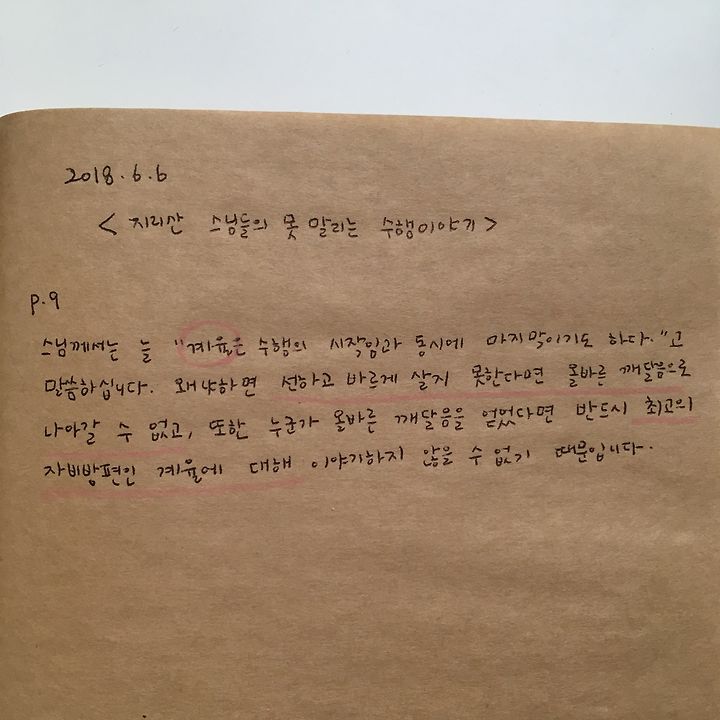 2018.6.6
< 지리산 스님들의 못 말리는 수행이야기 >
p.9
스님께서는 늘 "계율은 수행의 시작임과 동시에 마지막이기도 하다."고
말씀하십니다. 왜냐하면 선하고 바르게 살지 못한다면 올바른 깨달음으로
나아갈 수 없고, 또한 누군가 올바른 깨달음을 얻었다면 반드시 최고의
자비방편인 계율에 대해 이야기하지 않을 수 없기 때문입니다.